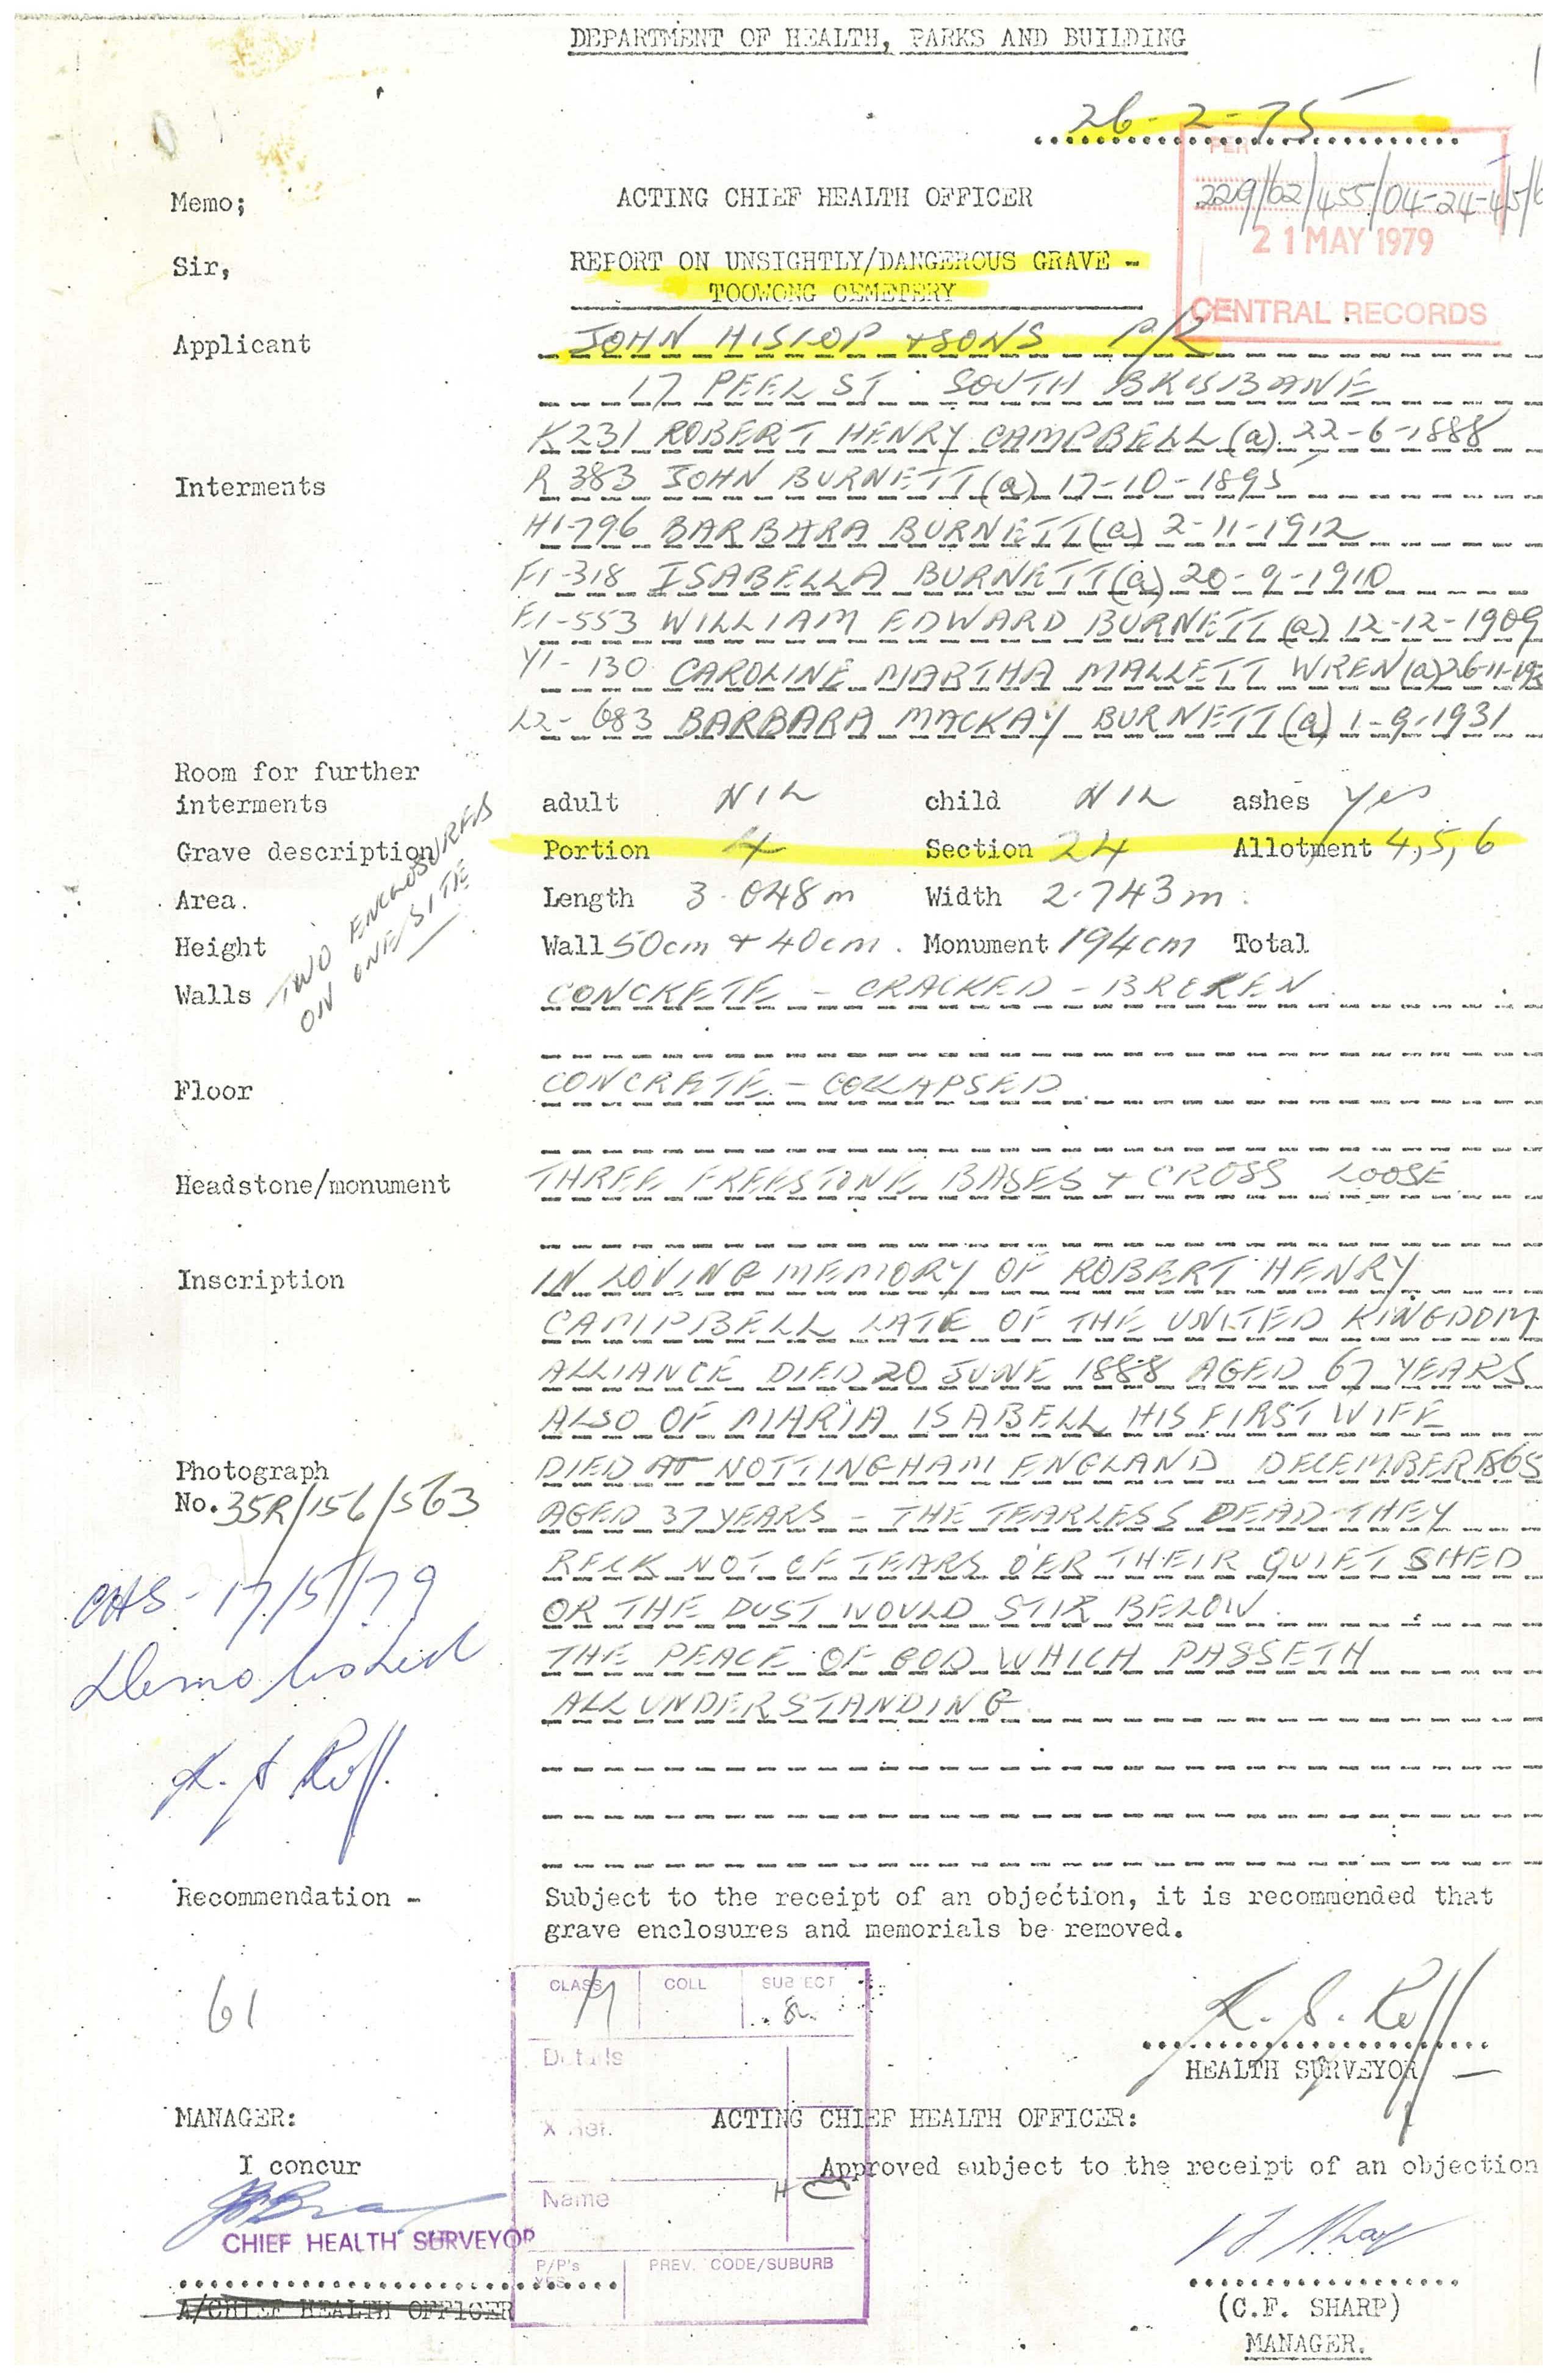 DEPARTMENT OF HEALTH, PARKS AND BUILDING
26-2-75
PER
Memo;
ACTING CHIEF HEALTH OFFICER
229/62/455/04-24-4/5/6
21 MAY 1979
CENTRAL RECORDS
Sir,
REPORT ON UNSIGHTLY/DANGEROUS GRAVE -
TOOWONG CEMETERY
Applicant
JOHN HISLOP & SONS P/L
17 PEEL ST SOUTH BRISBANE
K231 ROBERT HENRY CAMPBELL (a) 22-6-1888
Interments
R 383 JOHN BURNETT (a) 17-10-1895
H1-796 BARBARA BURNETT (a) 2-11-1912
F1-318 ISABELLA BURNETT (a) 20-9-1910
E1-553 WILLIAM EDWARD BURNETT (a) 12-12-1909
Y1-130 CAROLINE MARTHA MALLETT WREN (a) 26-11-193
L2-683 BARBARA MACKAY BURNETT (a) 1-9-1931
Room for further
interments
adult NIL child NIL ashes yes
Grave description
Portion 4 Section 24 Allotment 4,5,6
TWO ENCLOSURES
ON ONE SITE
Area.
Length 3.048m Width 2.743m.
Height
Wall 50cm + 40cm. Monument 194cm Total
Walls
CONCRETE - CRACKED - BROKEN
Floor
CONCRETE - COLLAPSED
Headstone/monument
THREE FREESTONE BASES + CROSS LOOSE
Inscription
IN LOVING MEMORY OF ROBERT HENRY
CAMPBELL LATE OF THE UNITED KINGDOM
ALLIANCE DIED 20 JUNE 1888 AGED 67 YEARS
ALSO OF MARIA ISABELL HIS FIRST WIFE
DIED AT NOTTINGHAM ENGLAND DECEMBER 1865
AGED 37 YEARS - THE TEARLESS DEAD THEY
RECK NOT OF TEARS O'ER THEIR QUIET SHED
OR THE DUST WOULD STIR BELOW.
THE PEACE OF GOD WHICH PASSETH
ALL UNDERSTANDING
Photograph
No. 35R/156/563
CHS - 17/5/79
Demolished
Recommendation -
Subject to the receipt of an objection, it is recommended that
grave enclosures and memorials be removed.
61
CLASS COLL SUBJECT
Details
X Ref.
Name
P/P's
YES
PREV. CODE/SUBURB
HEALTH SURVEYOR
MANAGER:
I concur
CHIEF HEALTH SURVEYOR
A/CHIEF HEALTH OFFICER
ACTING CHIEF HEALTH OFFICER:
Approved subject to the receipt of an objection
(C.F. SHARP)
MANAGER.